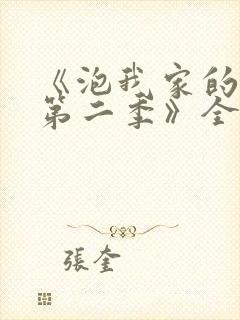 《泡我家的
第二季》全
張奎